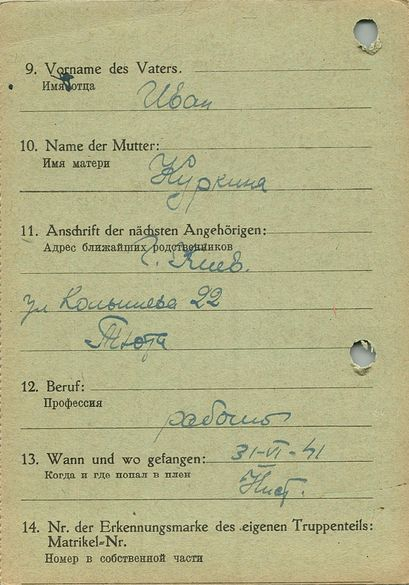 9. Vorname des Vaters.
Имя отца
Иван
10. Name der Mutter:
Имя матери
Куркина
11. Anschrift der nächsten Angehörigen:
Адрес ближайших родственников
г. Киев.
ул 22
12. Beruf:
Профессия
13. Wann und wo gefangen: 31-VI-41
Когда и где попал в плен
14. Nr. der Erkennungsmarke des eigenen Truppenteils:
Matrikel-Nr.
Номер в собственной части